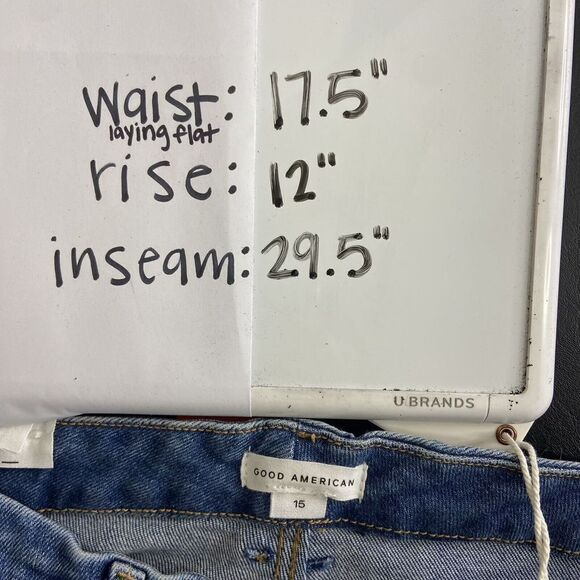 waist: 17.5"
laying flat
rise: 12"
inseam: 29.5"
U BRANDS
GOOD AMERICAN
15